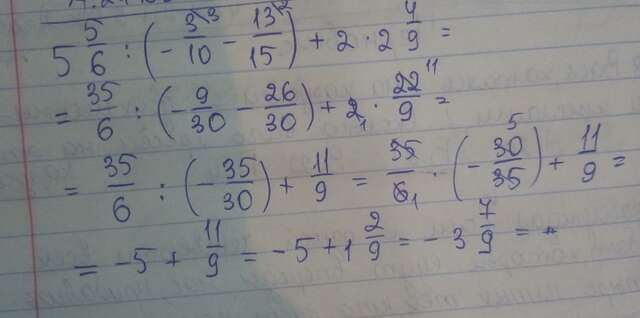 5 5/6 : (- 3/10 - 13/15) + 2 · 2 4/9 =
= 35/6 : (- 9/30 - 26/30) + 2 · 22/9 =
= 35/6 : (- 35/30) + 11/9 = 35/6 · (- 30/35) + 11/9 =
= -5 + 11/9 = -5 + 1 2/9 = -3 7/9 =